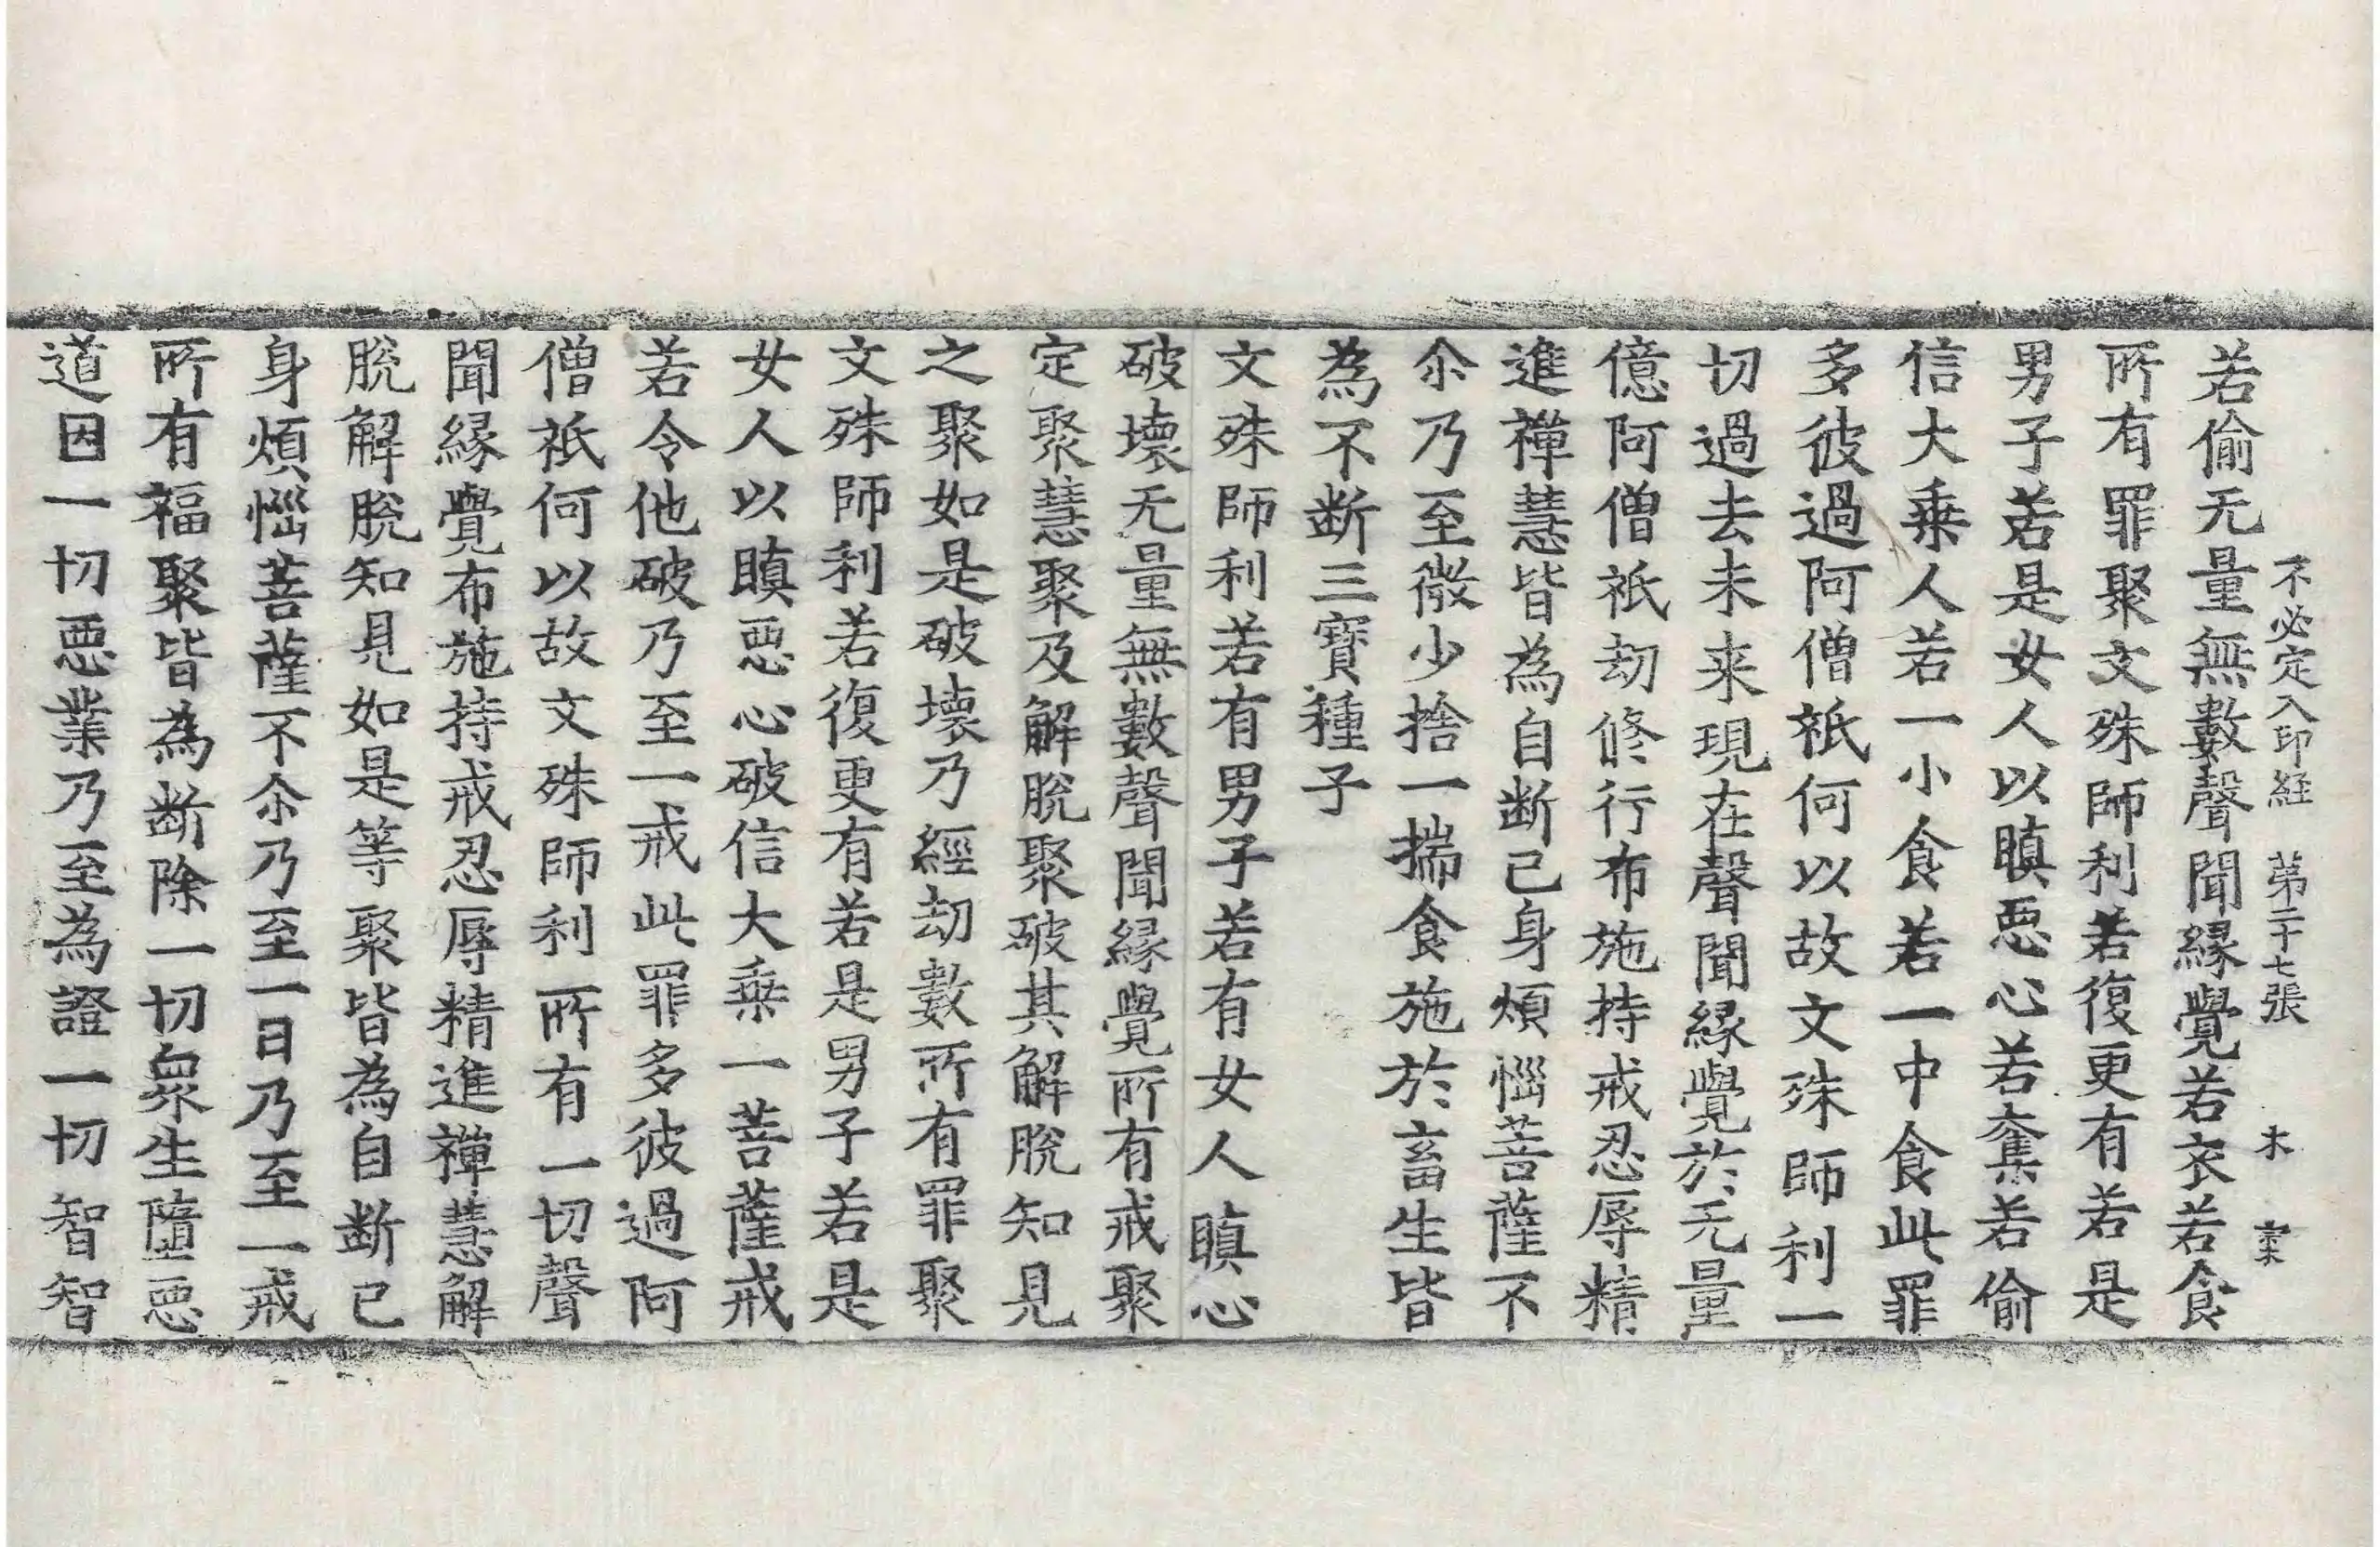 不必定入印経 第二十七張 木 宲
若偷无量無數聲聞緣覺若衣若食
所有罪聚文殊師利若復更有若是
男子若是女人以瞋惡心若奪若偷
信大乗人若一小食若一中食此罪
多彼過阿僧祇何以故文殊師利一
切過去未来現在聲聞緣覺於无量
億阿僧祇劫修行布施持戒忍辱精
進禪慧皆為自断己身煩惱菩薩不
尒乃至微少捨一揣食施於畜生皆
為不断三寶種子
文殊師利若有男子若有女人瞋心
破壞无量無數聲聞緣覺所有戒聚
定聚慧聚及解脫聚破其解脫知見
之聚如是破壞乃經劫數所有罪聚
文殊師利若復更有若是男子若是
女人以瞋惡心破信大乗一菩薩戒
若令他破乃至一戒此罪多彼過阿
僧祇何以故文殊師利所有一切聲
聞緣覺布施持戒忍辱精進禪慧解
脫解脫知見如是等聚皆為自断己
身煩惱菩薩不尒乃至一日乃至一戒
所有福聚皆為断除一切衆生墮惡
道因一切惡業乃至為證一切智智